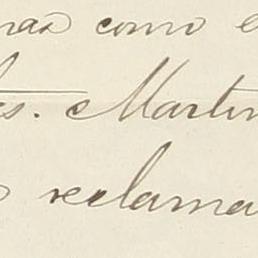 nas como e
s. Martin
reclama